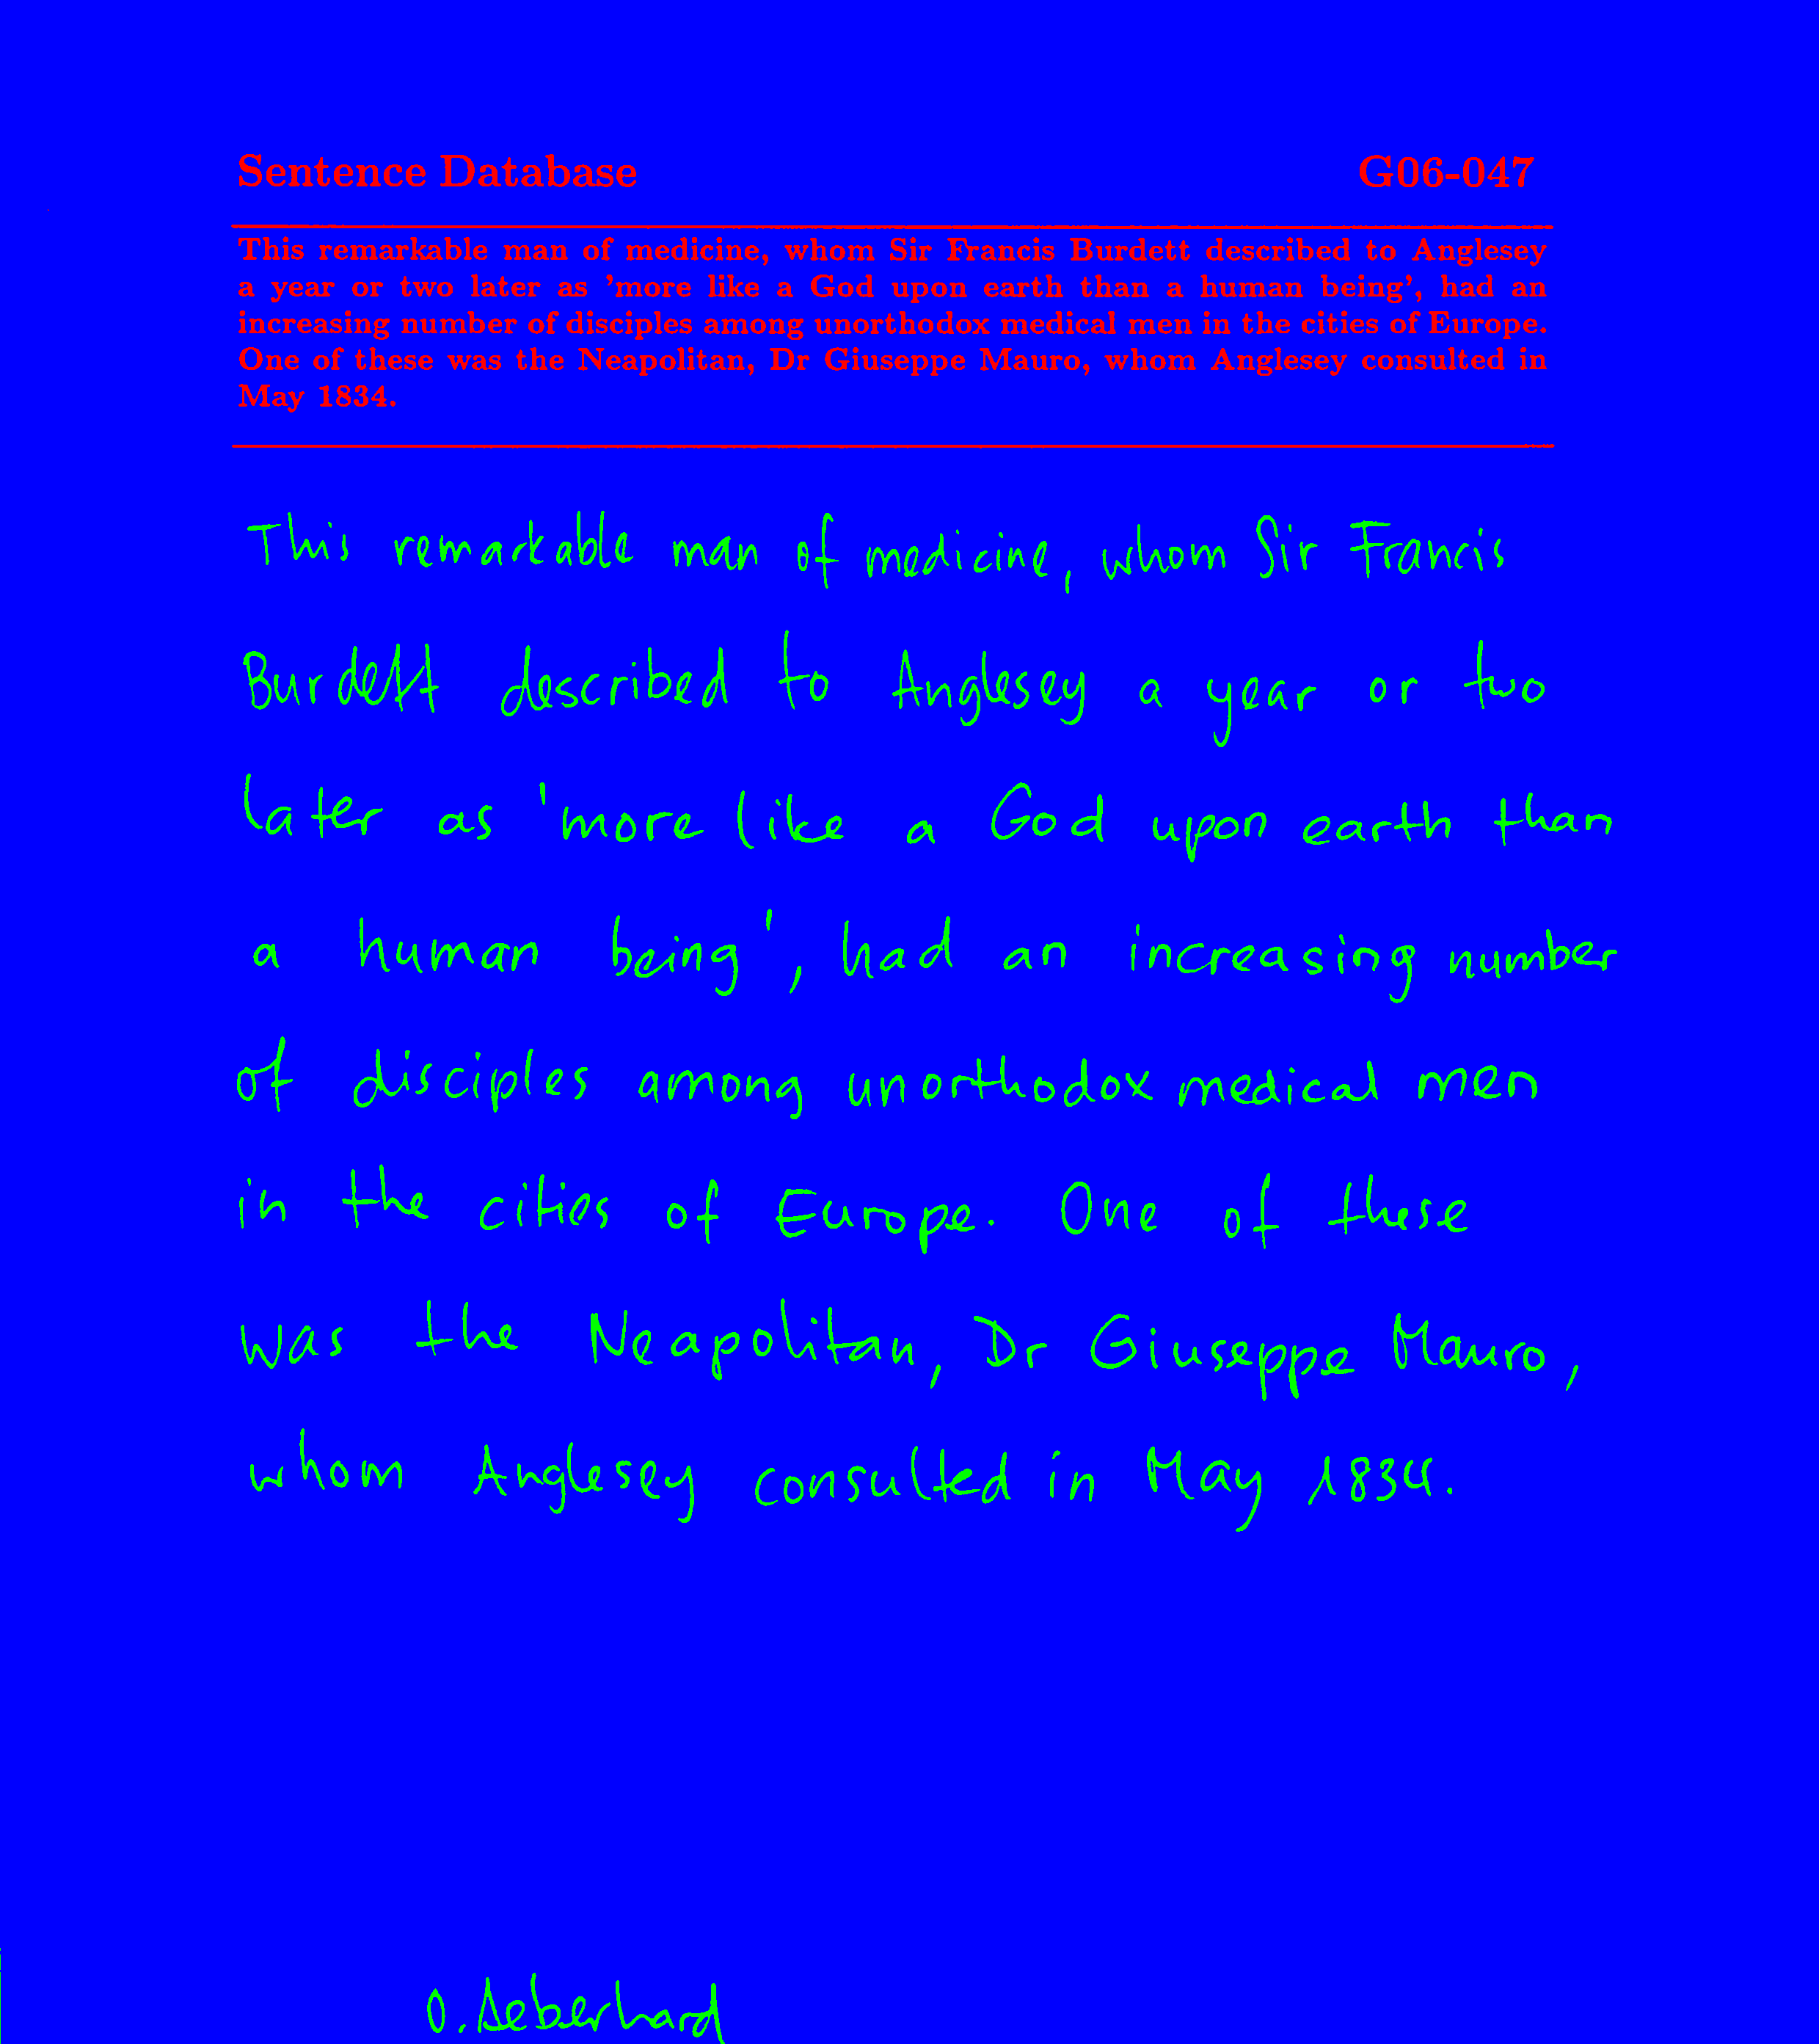 Sentence Database G06-047
This remarkable man of medicine, whom Sir Francis Burdett described to Anglesey
a year or two later as 'more like a God upon earth than a human being', had an
increasing number of disciples among unorthodox medical men in the cities of Europe.
One of these was the Neapolitan, Dr Giuseppe Mauro, whom Anglesey consulted in
May 1834.
This remarkable man of medicine, whom Sir Francis
Burdett described to Anglesey a year or two
later as 'more like a God upon earth than
a human being', had an increasing number
of disciples among unorthodox medical men
in the cities of Europe. One of these
was the Neapolitan, Dr Giuseppe Mauro,
whom Anglesey consulted in May 1834.
O. Aeberhard